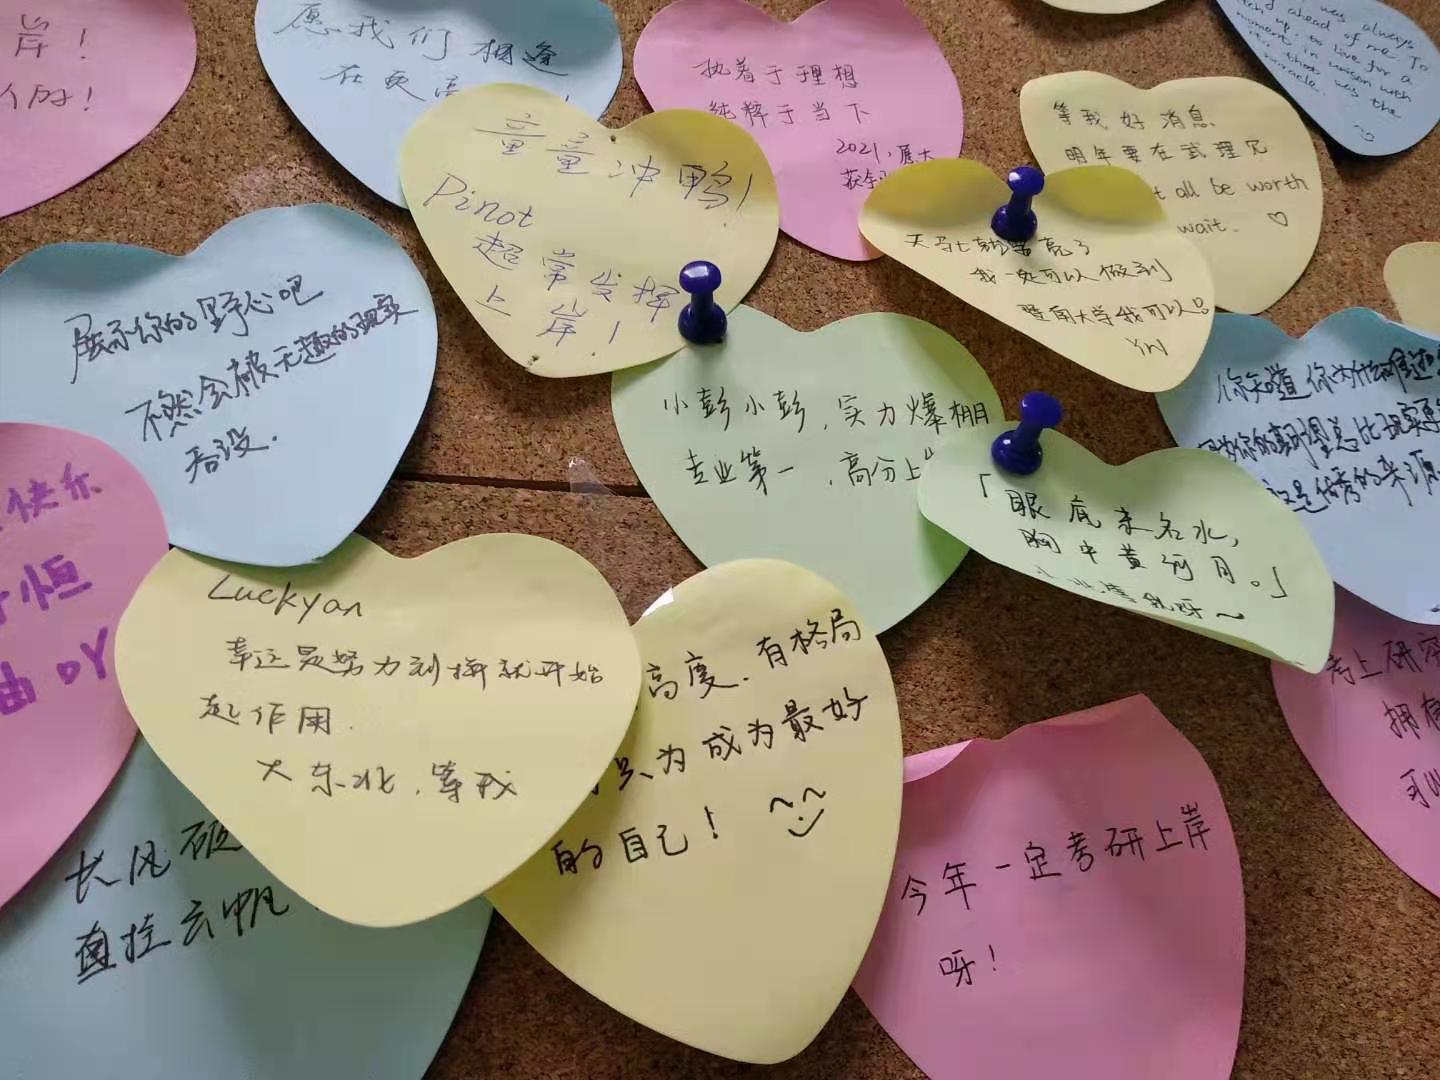 岸！
们！
愿我们相逢
在更
执着于理想
纯粹于当下
2021，厦大
was always
ahead of me. To
stand up, to love for a
moment in unison with
was the
miracle.
等我好消息
明年要在武理
all be worth
wait. ♡
童童冲鸭！
Pinot
超常发挥
上岸！
天马上就要亮了
我一定可以做到
暨南大学我可以！
YW
展示你的野心吧
不然会被无趣的现实
吞没.
小彭小彭，实力爆棚
专业第一，高分上
「眼底未名水，
胸中黄河月。」
呀～
你知道你为什么难过
你的理想总比现实
是优秀的来源
快乐
恒
吖
Luckyan
幸运是努力到拼就开始
起作用.
大东北，等我
高度.有格局
只为成为最好
的自己！
长风破
直挂云帆
考上研究
拥有
可以
今年一定考研上岸
呀！